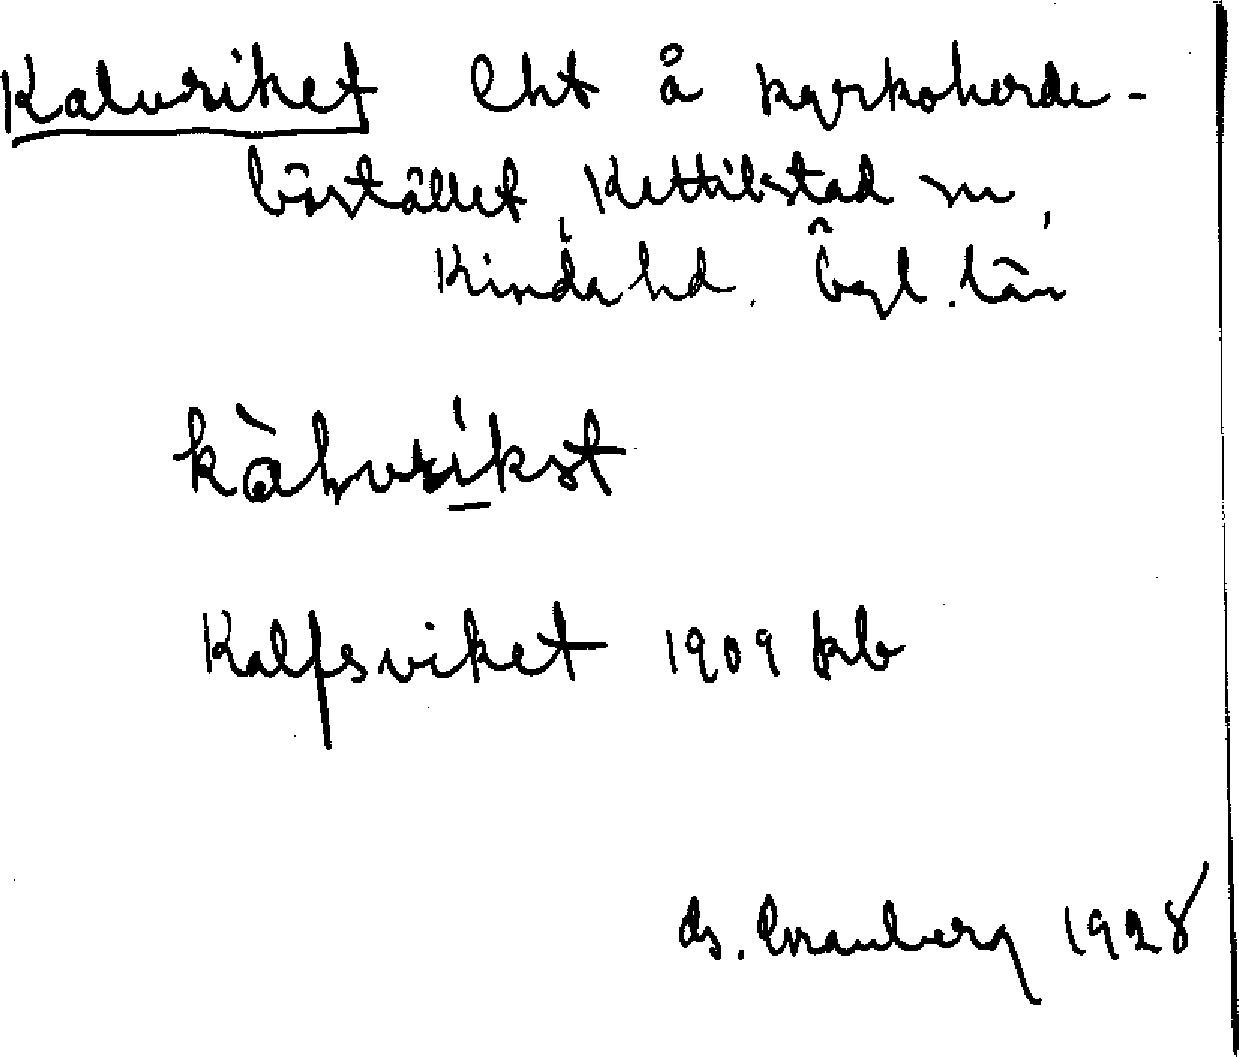 Kalvriket Lht å kyrkoherde-
bostället, Kettilstad sn,
Kinda hd. Ögl. län
Kalfsviket 1909 kb
Cranberg 1928